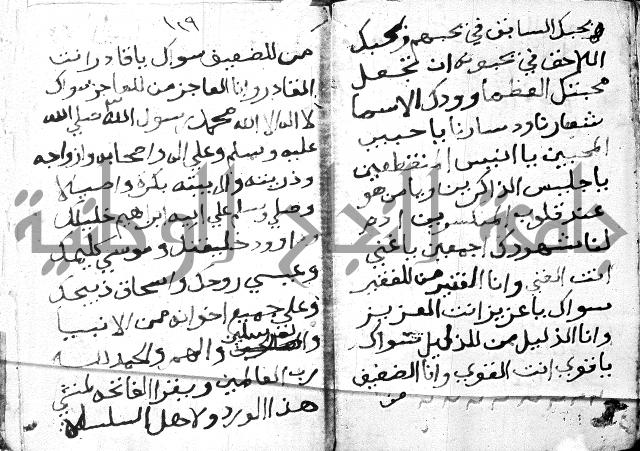 بحبك السابق في يحبهم وبحبك
اللاحق في يحبونه ان تجعل
محبتك العظما وودك الاسما
شعارنا ودسارنا يا حبيب
المحبين يا انيس المنقطعين
يا جليس الذاكرين ويا من هو
عند قلوب المنكسرين ادم
لنا شهودك اجمعين يا غني
انت الغني وانا الفقير من للفقير
سواك يا عزيز انت العزيز
وانا الذليل من للذليل سواك
يا قوي انت القوي وانا الضعيف
من
١٢٩
من للضعيف سواك يا قادر انت
القادر وانا العاجز من للعاجز سواك
لا اله الا الله محمد رسول الله صلي الله
عليه وسلم وعلي اله واصحابه وازواجه
وذريته بكرة واصيلا
وصلي وسلم علي ابيه ابراهيم خليلك
وداوود خليفتك وموسي كليمك
وعيسي روحك واسحاق ذبيحك
وعلي جميع اخوانه من الانبيا
والمرسلين والهم والحمد لله
رب العالمين ويقرا الفاتحه لمنشي
هذا الورد ولاهل السلسلة
جامعة النجاح الوطنية